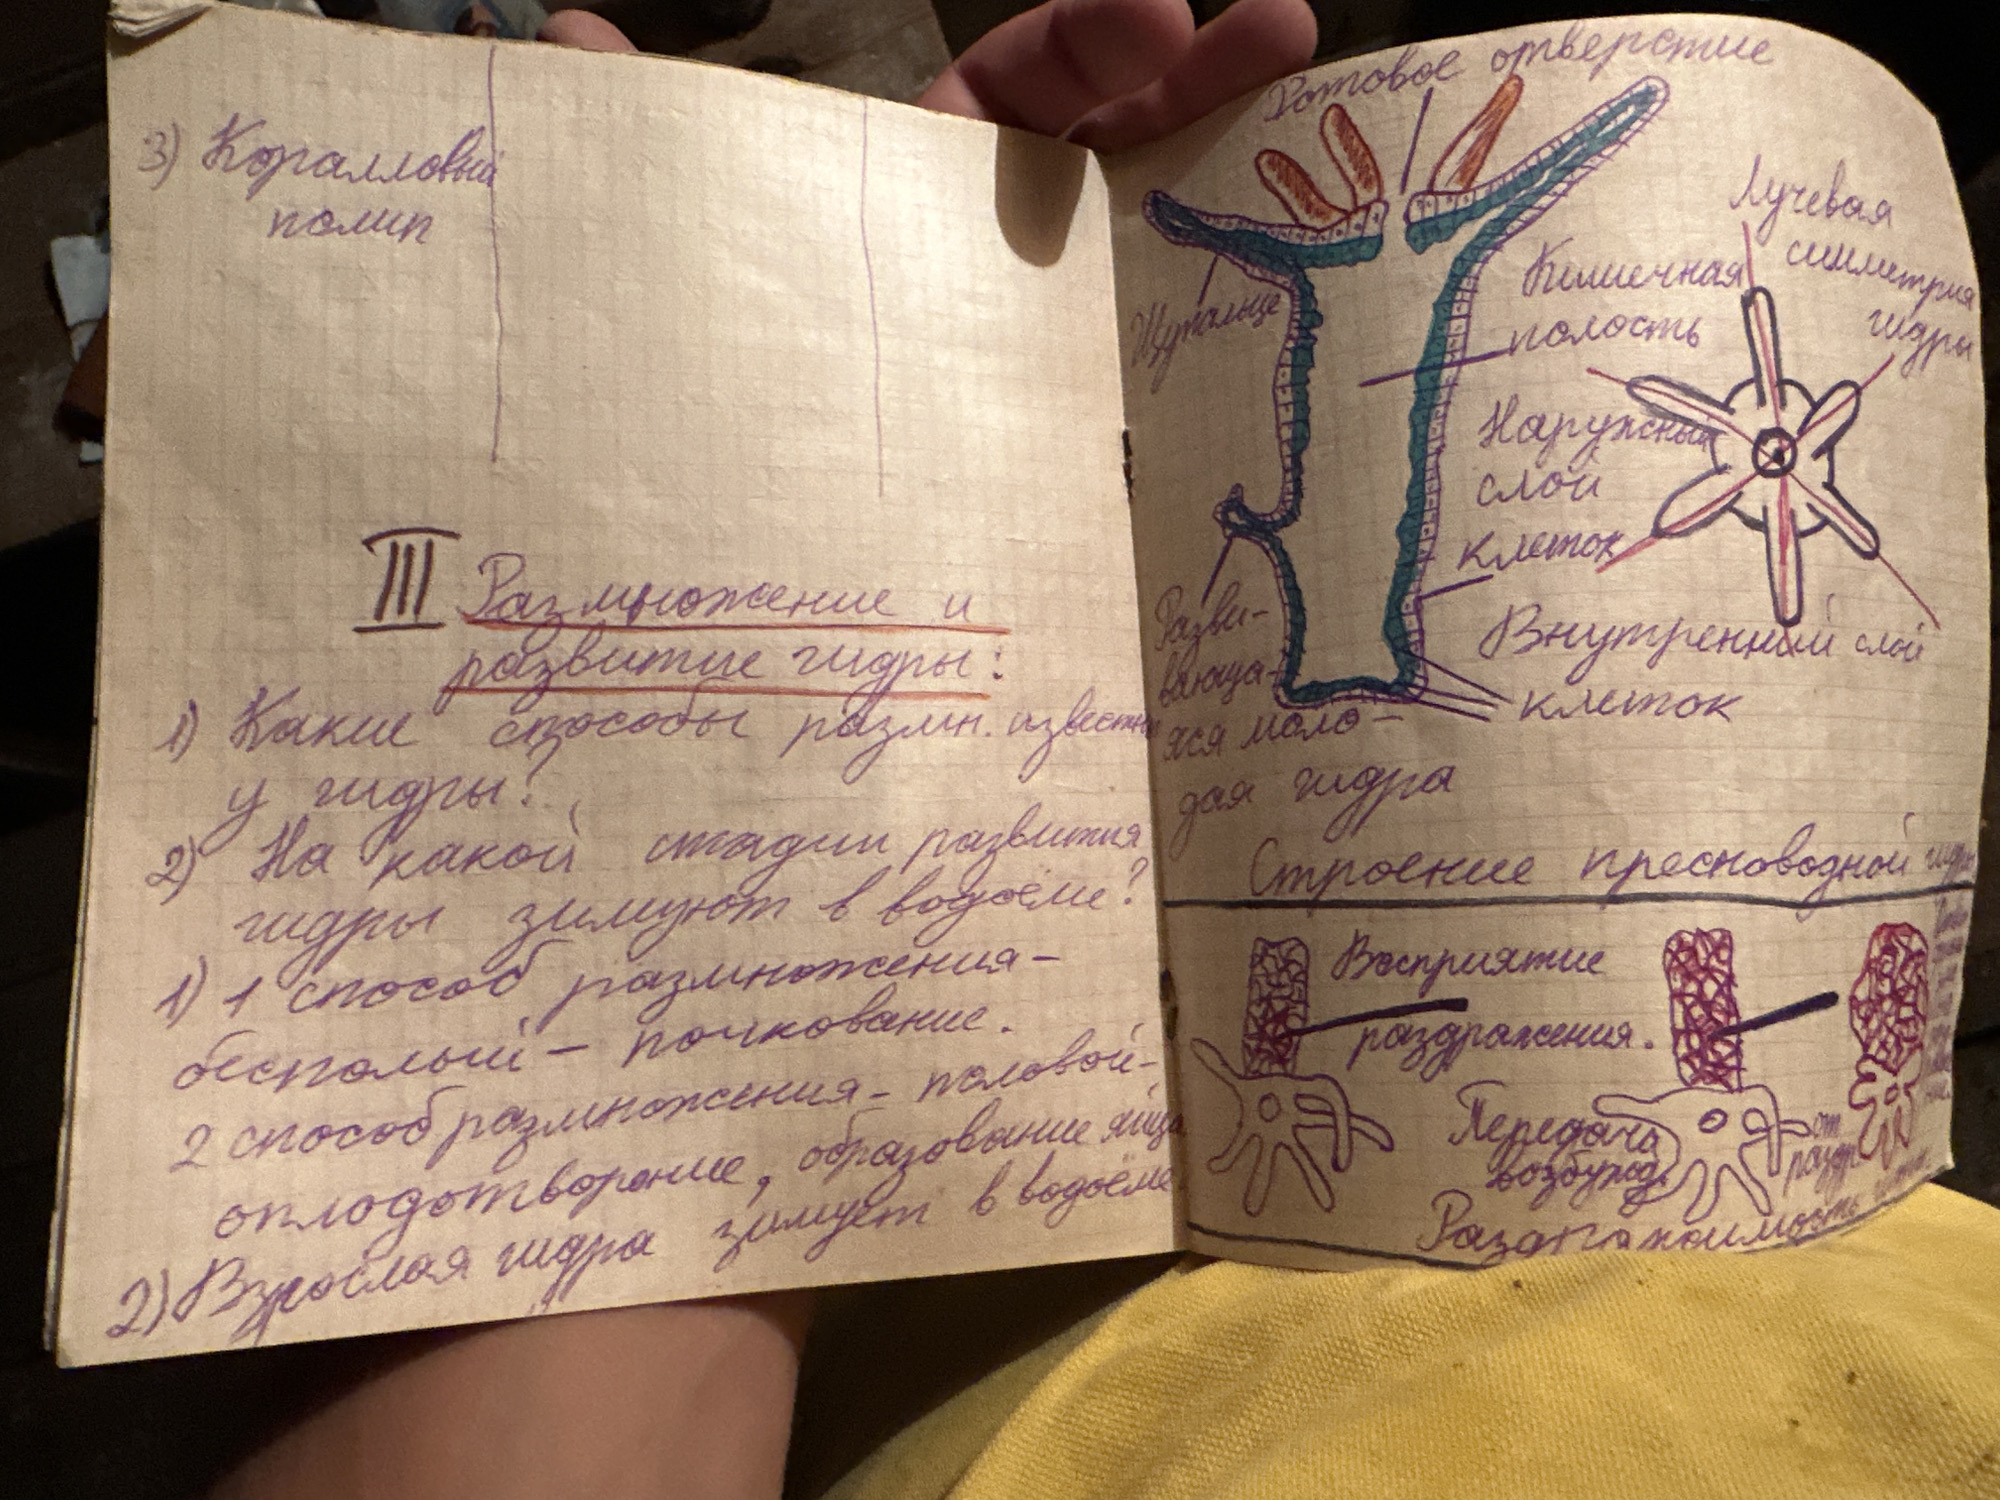 3) Коралловый
полип
III Размножение и
развитие гидры:
1) Какие способы размн. известны
у гидры?
2) На какой стадии развития
гидры зимуют в водоёме?
1) 1 способ размножения-
бесполый - почкование.
2 способ размножения- половой-
оплодотворение, образование яйца
2) Взрослая гидра зимует в водоёме
Ротовое отверстие
Щупальце
Лучевая
симметрия
гидры
Кишечная
полость
Наружный
слой
клеток
Внутренний слой
клеток
Разви-
вающа-
яся моло-
дая гидра
Строение пресноводной гидры
Восприятие
раздражения.
Передача
возбужд.
от
раздр
Раздражимость